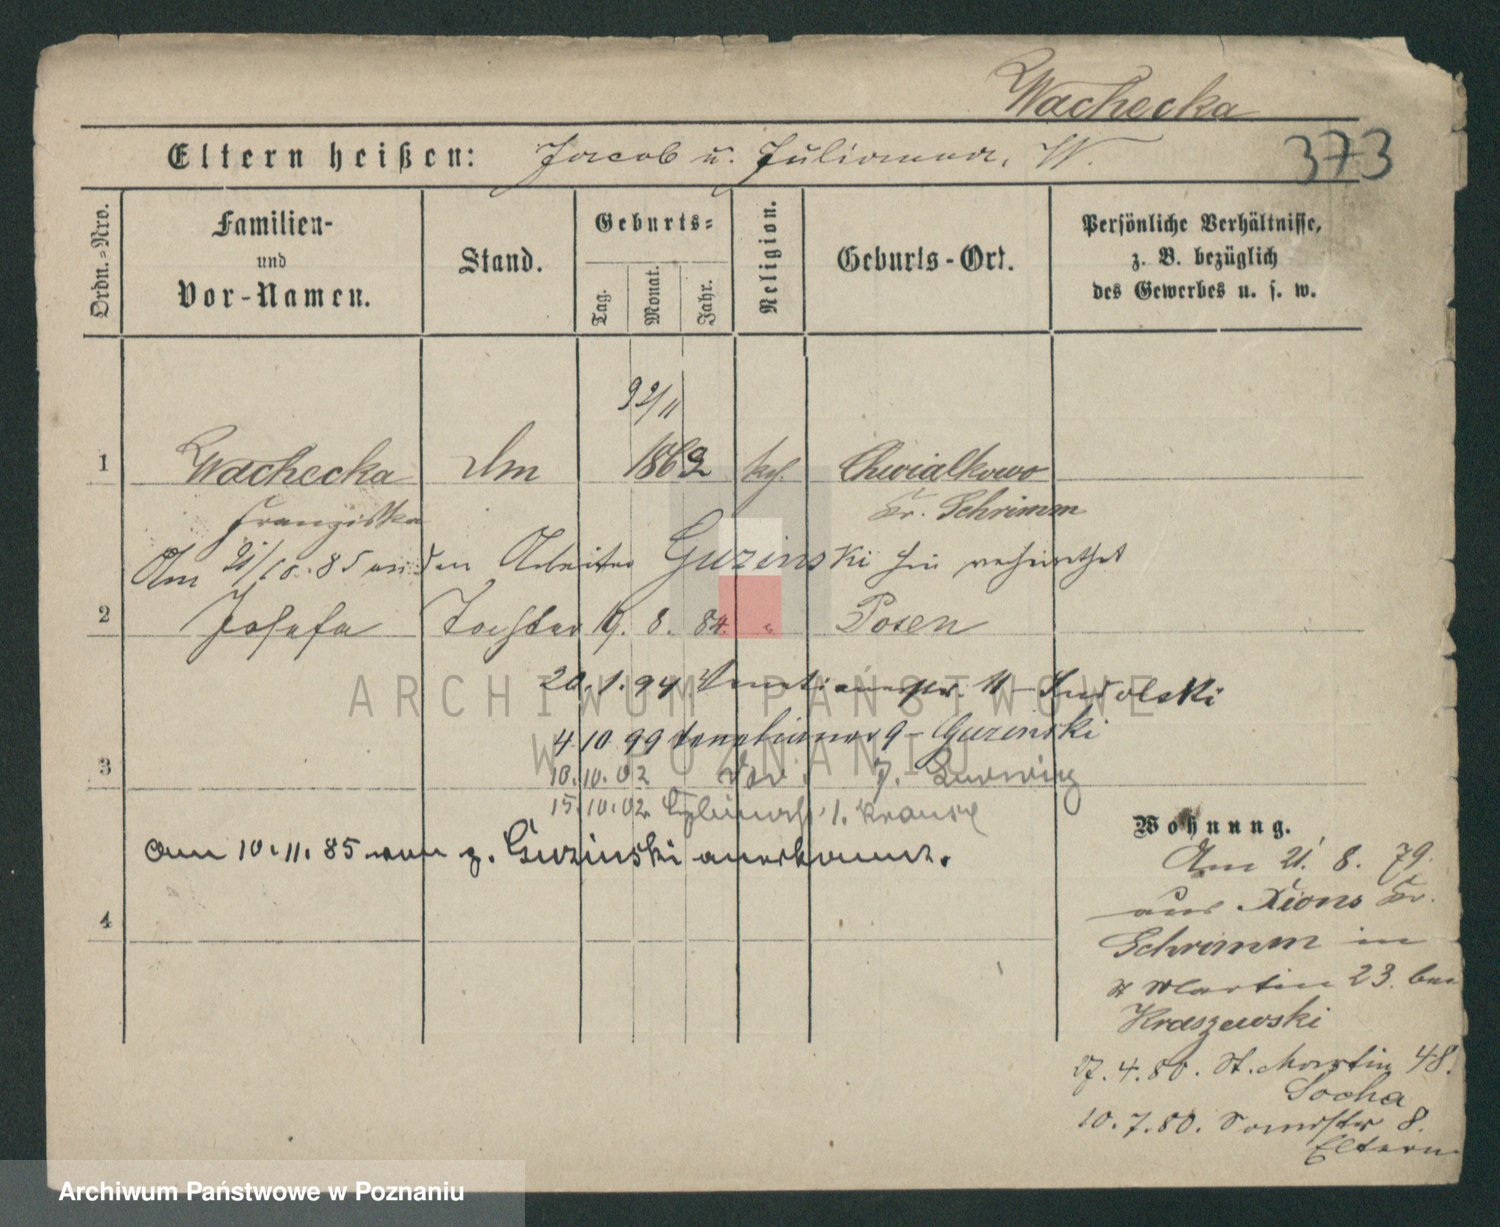 Wachecka
Eltern heißen: Jacob u. Julianna, W.
373
Ordn.-Nro.
Familien-
und
Vor-Namen.
Stand.
Geburts-
Tag.
Monat.
Jahr.
Religion.
Geburts-Ort.
Persönliche Verhältnisse,
z. B. bezüglich
des Gewerbes u. s. w.
1 Wachecka 1862 kath. Chwialkowo
Franziska Kr. Schrimm
Am 21/10.85 an den Arbeiter Guzinski hier verheirathet
2 Josefa Tochter 19. 8. 84. " Posen
20.1.94
4.10.99 9 - Guzinski
3 10.10.02 7. Ludwig
15.10.02 1. Krause
Am 10.11.85 von z. Guzinski anerkannt.
4
Wohnung.
Am 21. 8. 79.
aus Xions Kr.
Schrimm in
St Martin 23. bei
Kraszewski
4.80. St. Martin 48.
Socha
10.7.80. 8.
Eltern
ARCHIWUM PAŃSTWOWE
W POZNANIU
Archiwum Państwowe w Poznaniu